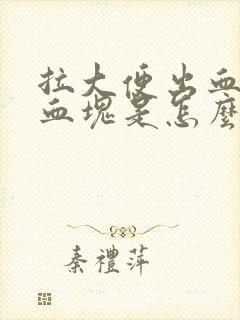 拉大便出血
血塊是怎麼
秦禮萍